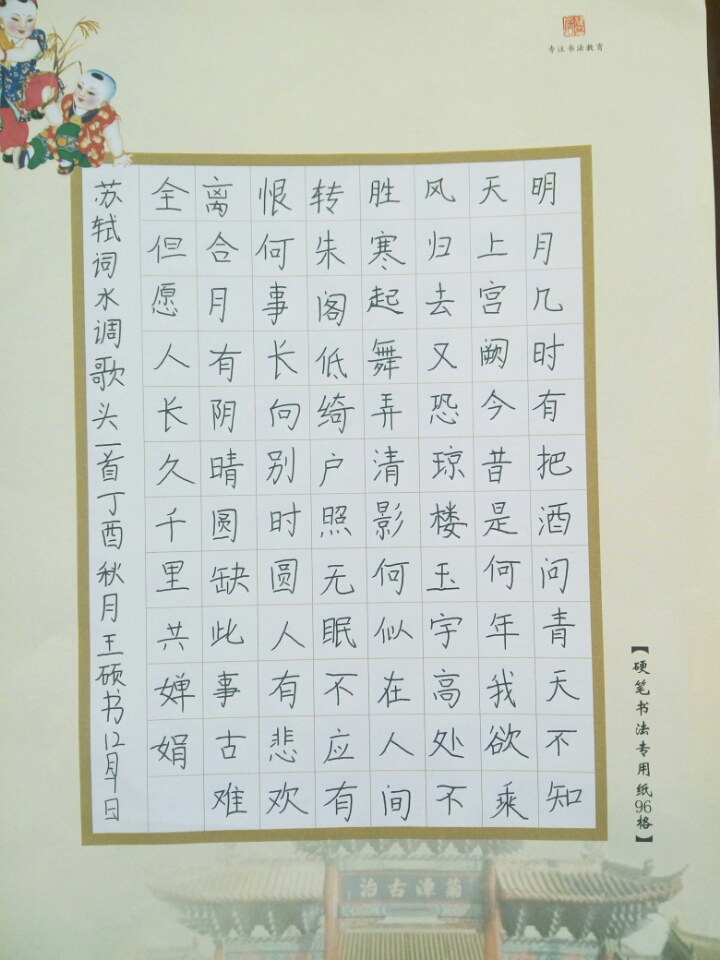 专注书法教育
明月几时有把酒问青天不知
天上宫阙今昔是何年我欲乘
风归去又恐琼楼玉宇高处不
胜寒起舞弄清影何似在人间
转朱阁低绮户照无眠不应有
恨何事长向别时圆人有悲欢
离合月有阴晴圆缺此事古难
全但愿人长久千里共婵娟
苏轼词水调歌头一首丁酉秋月王硕书12月日
【硬笔书法专用纸96格】
菊潭古治